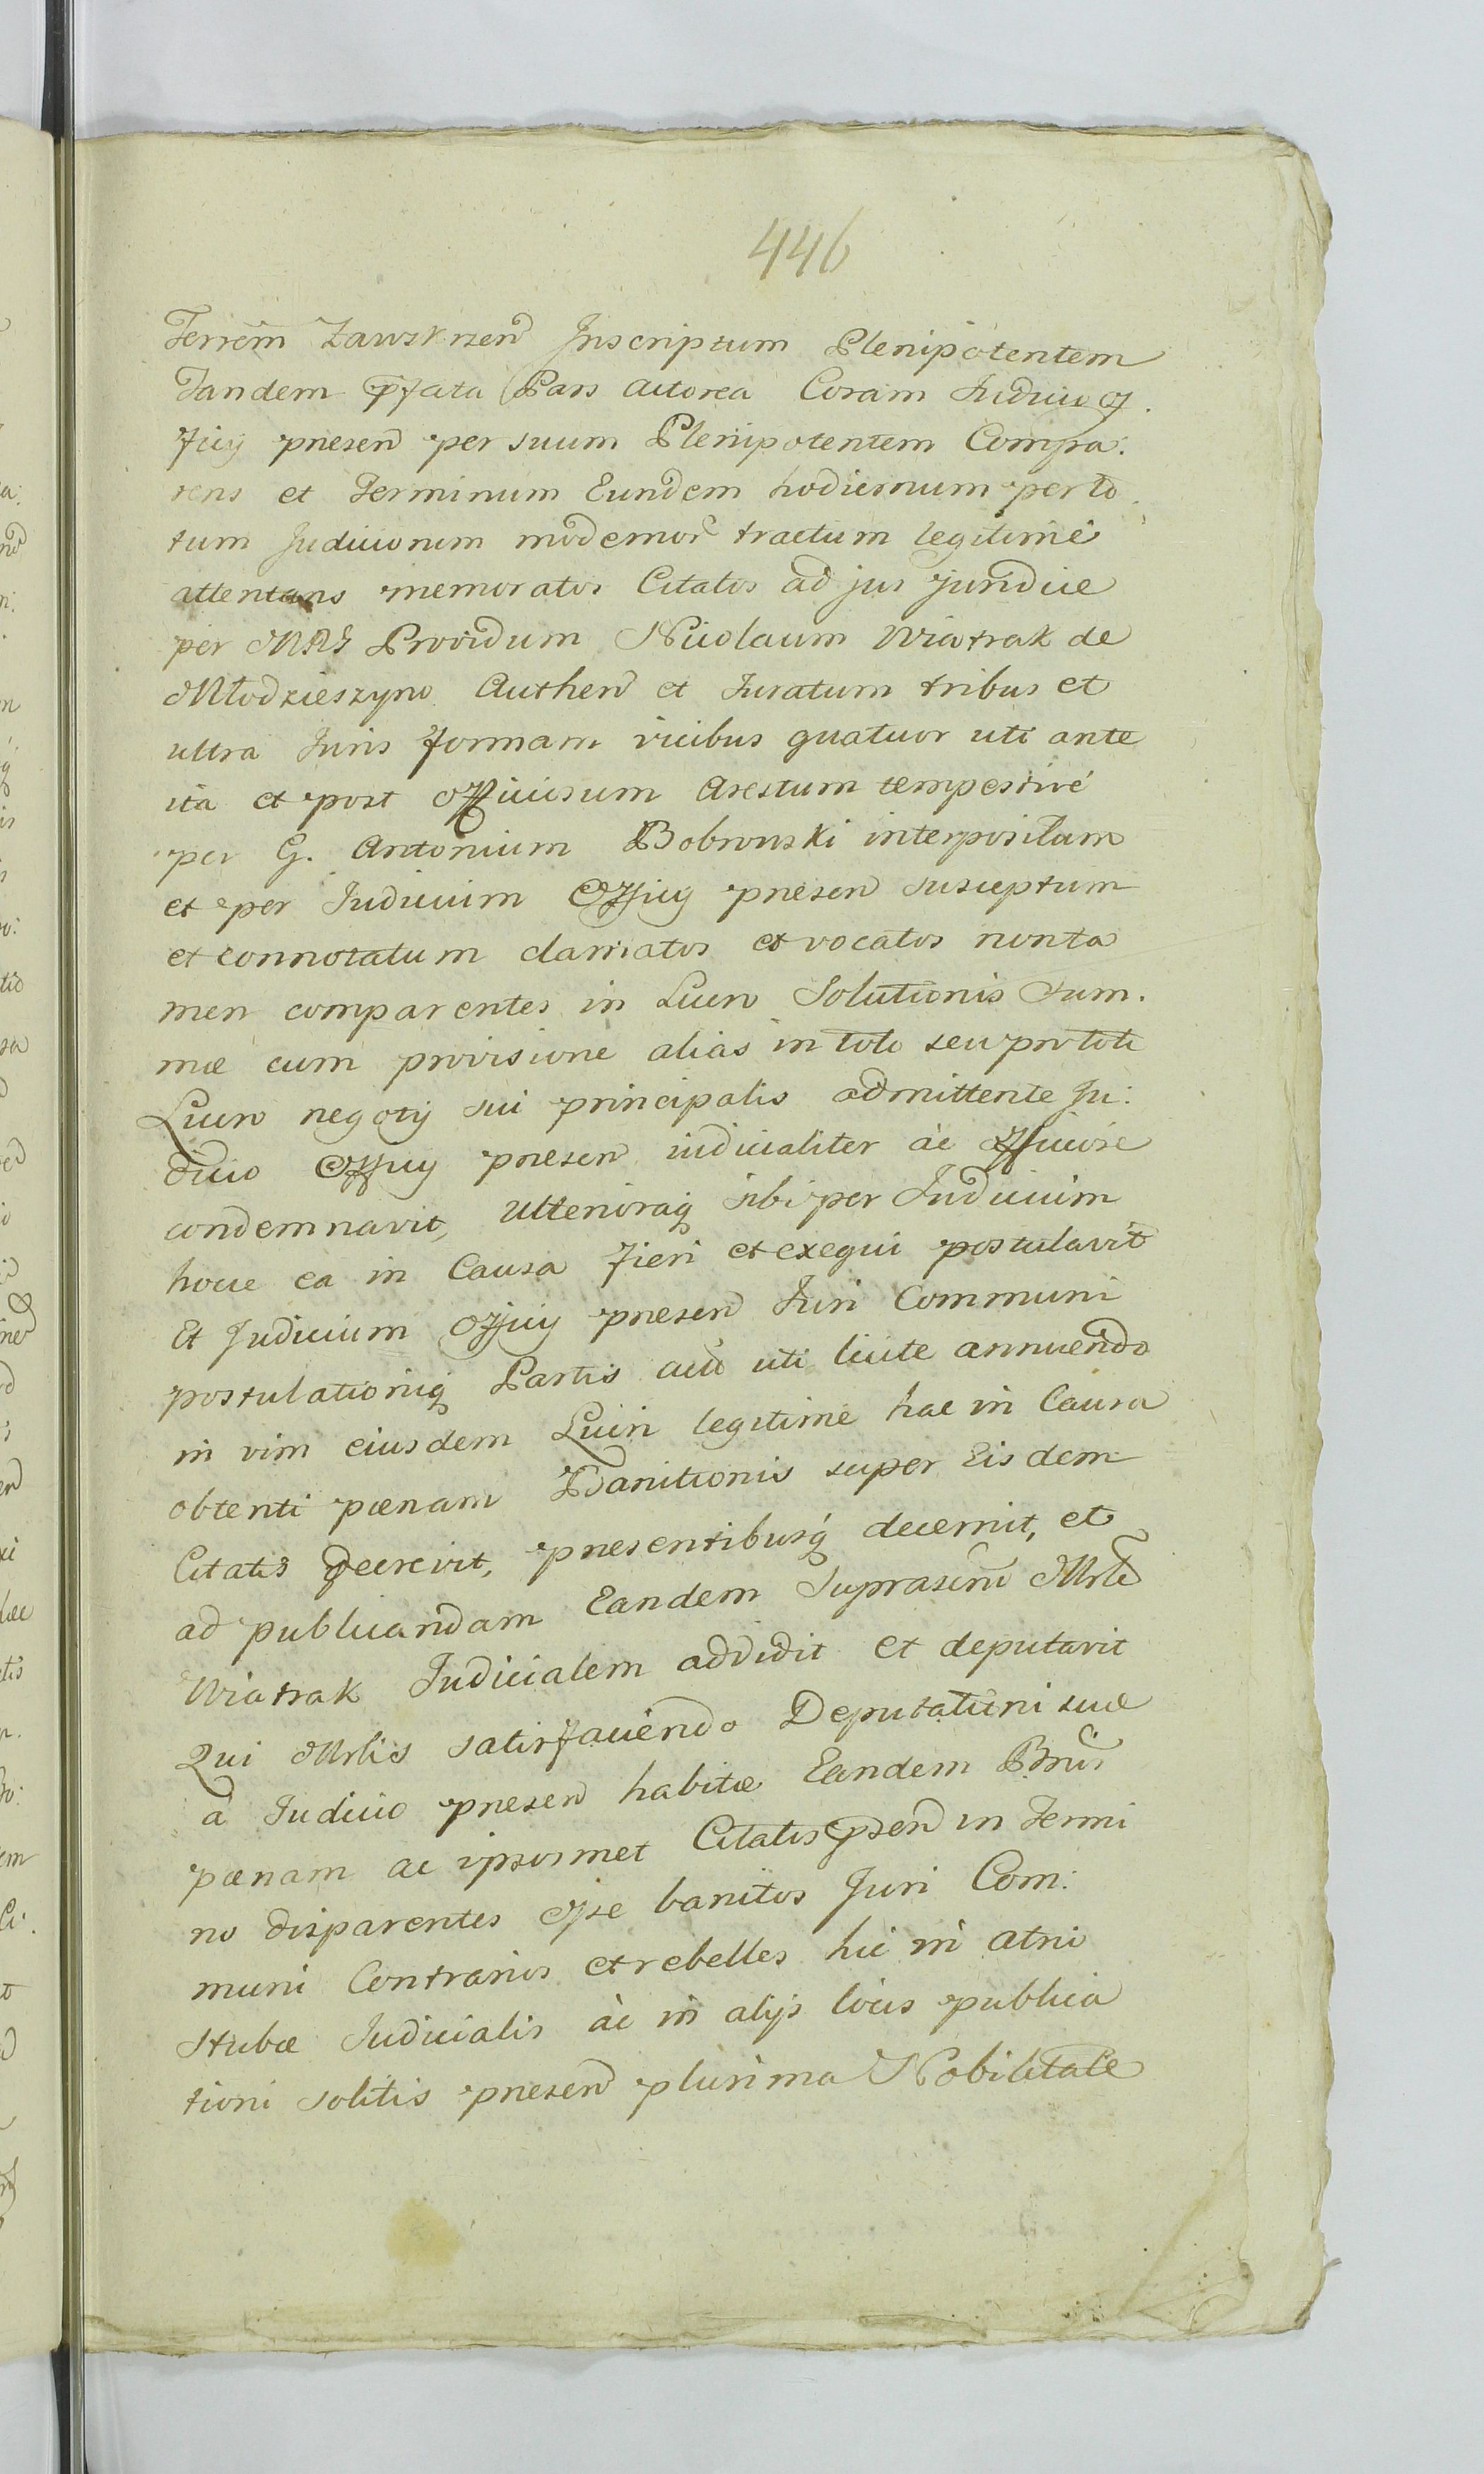 446
Terrem̃ Zawskrzen̄ Inscriptum Plenipotentem
Tandem p̄fata Pars actorea Coram Judicio Of.
ficij presen̄ per suum Plenipotentem Compa:
rens et Terminum Eundem hodiernum per to
tum Judiciorum modernor̄ tractum legitimè
attentans memoratos Citatos ad jus juridice
per Providum Nicolaum Wiatrak de
Młodzieszyno Authen̄ et Juratum tribus et
ultra Juris formam vicibus quatuor uti ante
ita et post Officiosum Arestum tempestivé
per G. Antonium Bobrowski interpositum
et per Judicium Officij presen̄ susceptum
et connotatum clamatos et vocatos non ta
men comparentes in Lucro Solutionis Sum.
mæ cum provisione alias in toto seu pro toti
Lucro negotij sui principalis admittente Ju:
dicio Officij presen̄ iudicialiter ac Officiose
condemnavit, Ulterioraq̨ sibi per Judicium
hocce ea in Causa fieri et exequi postulavit
Et Judicium Officij presen̄ Juri Communi
postulationiq̨ Partis act̄ uti licite annuendo
in vim eiusdem Lucri legitimè hac in Causa
obtenti pœnam Banitionis super Eisdem
Citatis decrevit, presentibusq̨ decernit, et
ad publicandam Eandem Suprascrm̃ Mrl̄e
Wiatrak Judicialem addidit et deputavit
Qui Mrlis satisfaciendo Deputationi suæ
a Judicio presen̄ habitæ Eandem Bñis
pœnam ac ipsosmet Citatos p̄sen̄ in Termi
no disparentes Esse banitos Juri Com:
muni Contrarios et rebelles hic in atrio
Stubæ Judicialis ac in alijs locis publica
tioni solitis presen̄ plurima Nobilitate